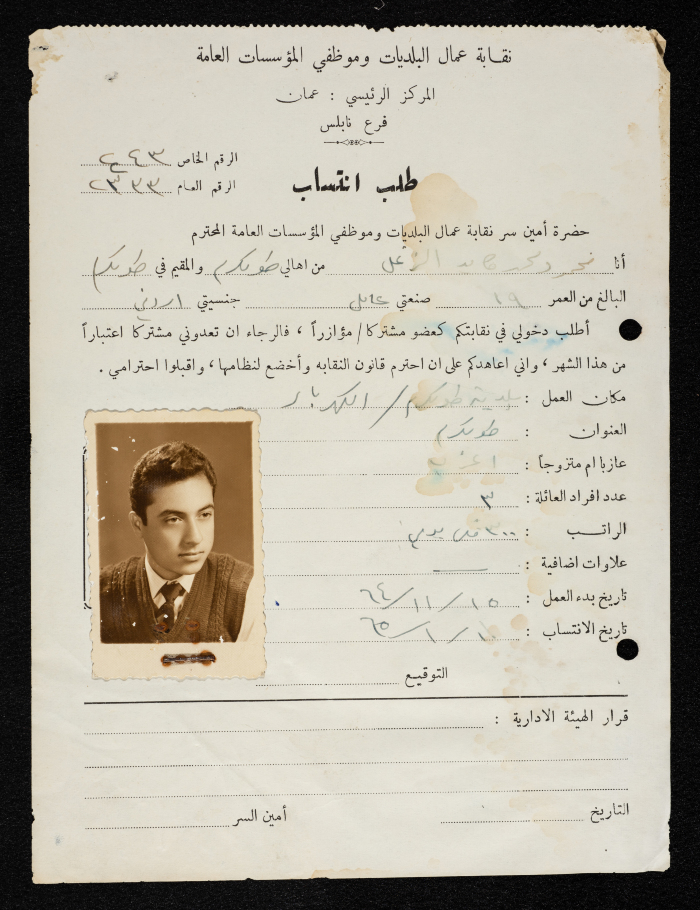 نقابة عمال البلديات وموظفي المؤسسات العامة
المركز الرئيسي : عمان
فرع نابلس
الرقم الخاص ٢٤٣
الرقم العام ٢٣٣٣
طلب انتساب
حضرة أمين سر نقابة عمال البلديات وموظفي المؤسسات العامة المحترم
أنا من اهالي طولكرم والمقيم في طولكرم
البالغ من العمر ١٩ صنعتي عامل جنسيتي اردني
أطلب دخولي في نقابتكم كعضو مشتركا/مؤازراً ، فالرجاء ان تعدوني مشتركا اعتباراً
من هذا الشهر ، واني اعاهدكم على ان احترم قانون النقابه وأخضع لنظامها ، واقبلوا احترامي .
مكان العمل : بلدية طولكرم / الكهرباء
العنوان : طولكرم
عازبا ام متزوجاً : اعزب
عدد افراد العائلة : ٣
الراتب : ٣٠٠ فلس يومي
علاوات اضافية :
تاريخ بدء العمل : ١٥/١١/٦٤
تاريخ الانتساب : /١/٦٥
التوقيع
قرار الهيئة الادارية :
التاريخ أمين السر